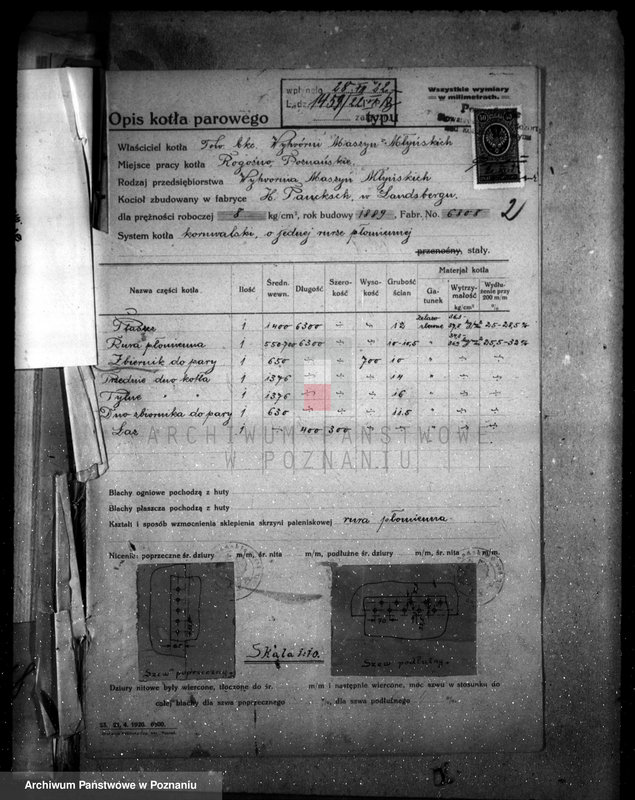 wpłynęło 28. 32
L.dz. 1459/22
Wszystkie wymiary
w milimetrach.
Opis kotła parowego typu
Właściciel kotła Tow. Akc. Wytwórni Maszyn Młyńskich
Miejsce pracy kotła Rogoźno Poznańskie.
Rodzaj przedsiębiorstwa Wytwornia Maszyn Młyńskich
Kocioł zbudowany w fabryce H. Paucksch, w Landsbergu.
dla prężności roboczej 8 kg/cm², rok budowy 1889, Fabr. No. 6808
2)
System kotła kornwalski, o jednej rurze płomiennej
przenośny, stały.
Nazwa części kotła Ilość Średn. wewn. Długość Szerokość Wysokość Grubość ścian Materjał kotła
Gatunek Wytrzymałość kg/cm² Wydłużenie przy 200 m/m %
Płaszcz 1 1400 6300 ÷ ÷ 12 25-28,5%
Rura płomienna 1 550/700 6300 ÷ ÷ 10-11,5 " 25,5-32%
Zbiernik do pary 1 650 ÷ 700 10 " ÷ ÷
Przednie dno kotła 1 1376 ÷ ÷ 14 " ÷ ÷
Tylne " " 1 1376 ÷ ÷ 16 " ÷ ÷
Dno zbiornika do pary 1 630 ÷ ÷ 11.5 " ÷ ÷
Łaz 1 ÷ 400 300 ÷ ÷ " ÷ ÷
ARCHIWUM PAŃSTWOWE
W POZNANIU
Blachy ogniowe pochodzą z huty
Blachy płaszcza pochodzą z huty
Kształt i sposób wzmocnienia sklepienia skrzyni paleniskowej rura płomienna.
Nicenie: poprzeczne śr. dziury m/m, śr. nita m/m, podłużne śr. dziury m/m, śr. nita m/m.
Skala 1:10.
Szew poprzeczny.
Szew podłużny.
Dziury nitowe były wiercone, tłoczone do śr. m/m i następnie wiercone, moc szwu w stosunku do
całej blachy dla szwa poprzecznego %, dla szwa podłużnego %.
23. 21. 4. 1920. 6000.
Archiwum Państwowe w Poznaniu